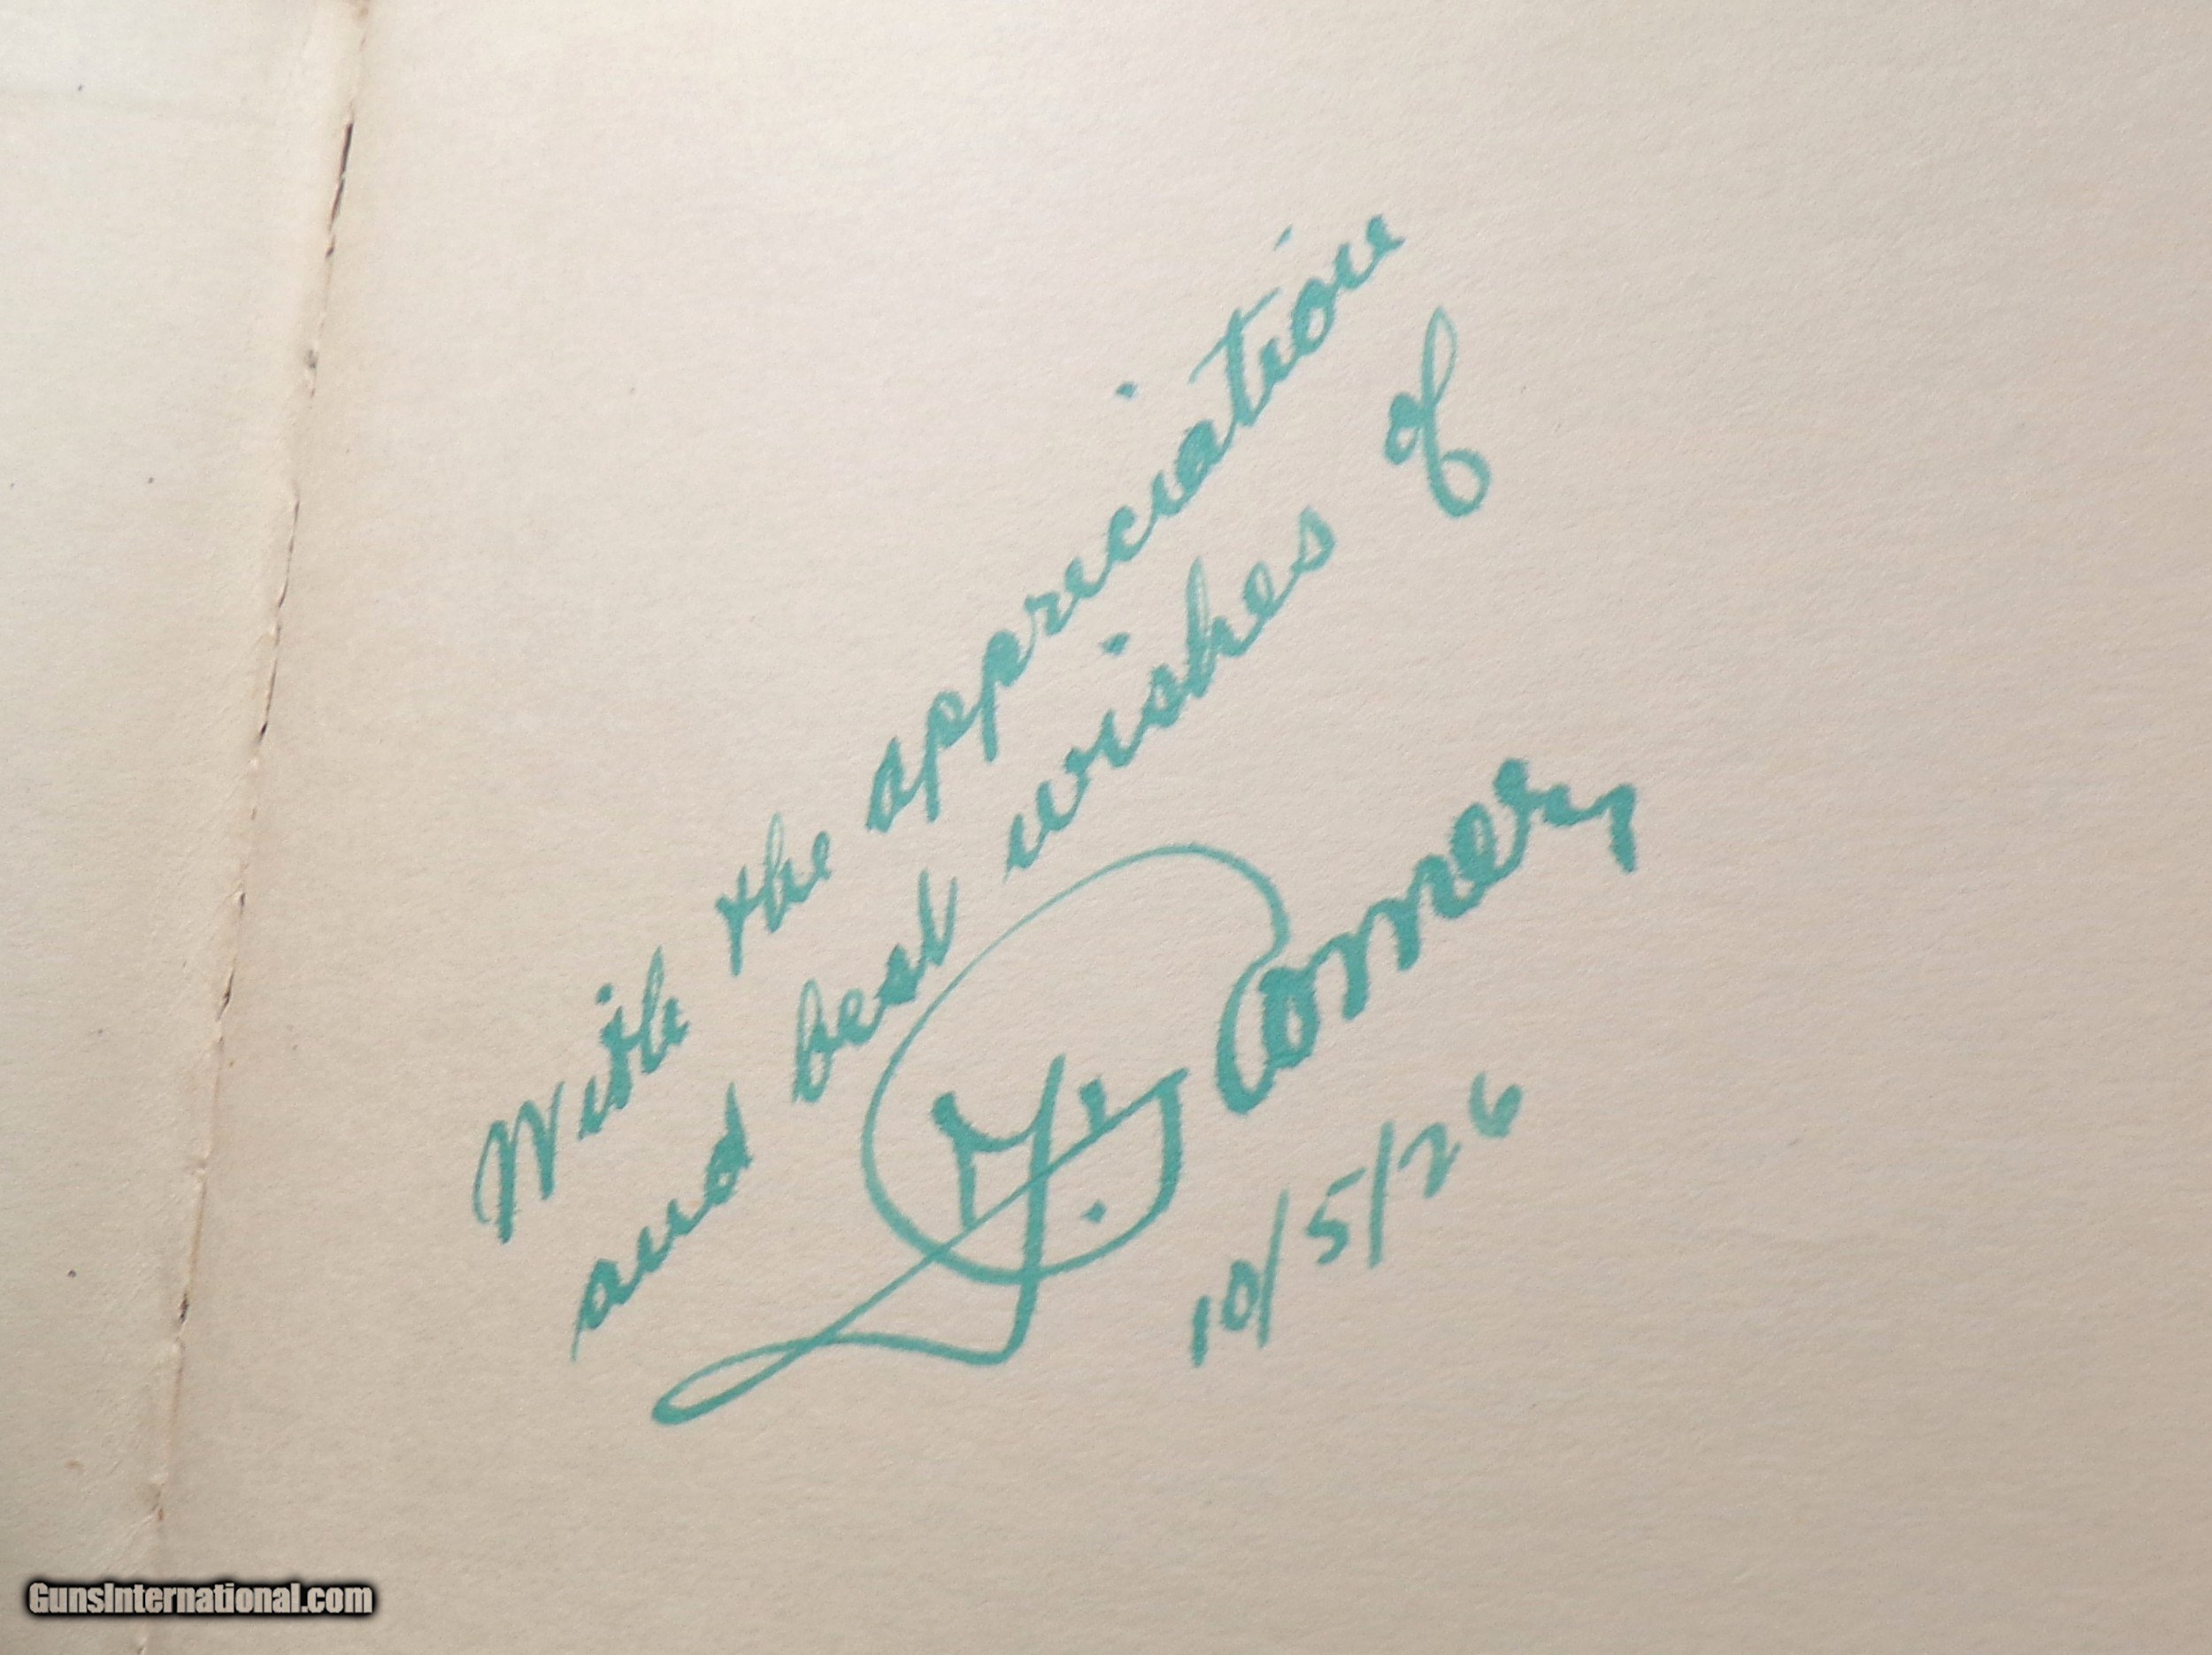 With the appreciation
and best wishes of
Comer
10/5/26
GunsInternational.com